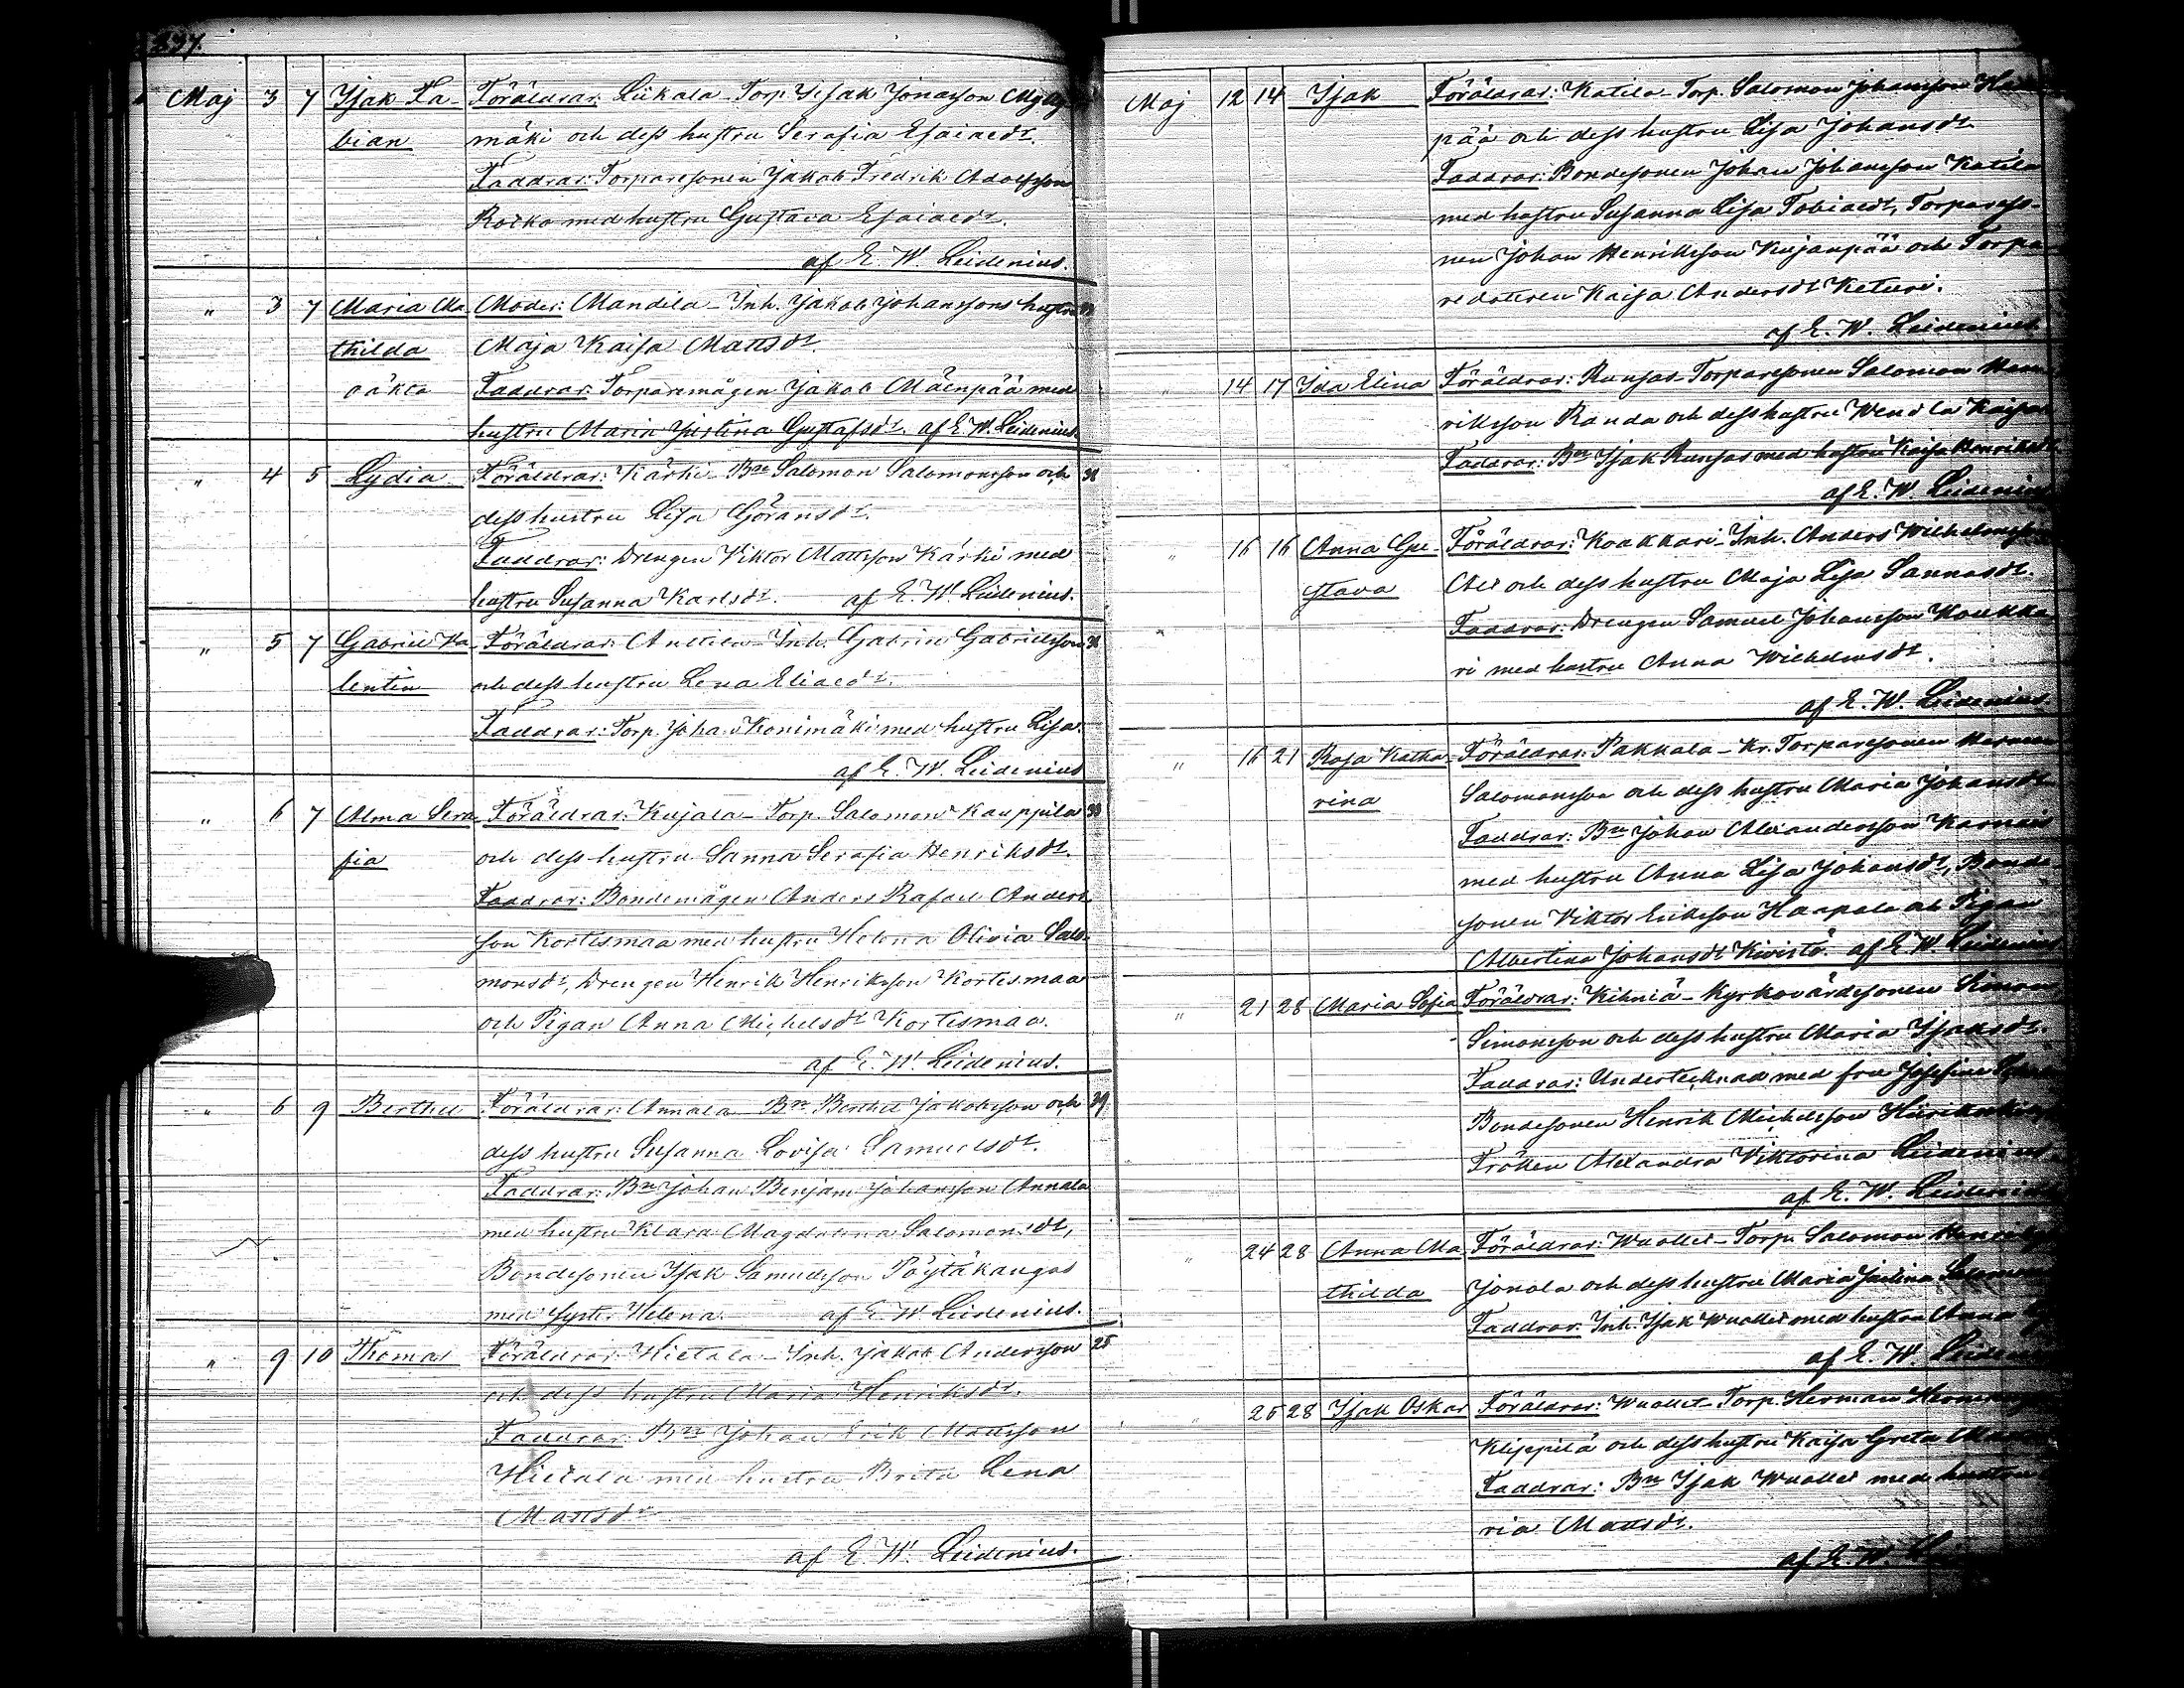 277.
Maj 3 7 Isak Fa- Föräldrar: Liikala-Torp. Isak Jonasson Mylly-
bian mäki och dess hustru Serafia Esaiaedr.
Faddrar: Torparesonen Jakob Fredrik Adolfsson
Rocko med hustru Gustava Esaiaedr.
af E. W. Leidenius.
" 3 7 Maria Ma- Moder: Mandila-Inh. Jakob Johanssons hustru
thilda Maja Kaisa Mattsdr.
oäkta Faddrar: Torparemågen Jakob Mäenpää med
hustru Maria Justina Gustafsdr. af E. W. Leidenius.
" 4 5 Lydia Föräldrar: Kärki-Bn Salomon Salomonsson och 38
dess hustru Lisa Göransdr.
Faddrar: Drengen Viktor Mattsson Kärki med
hustru Susanna Karlsdr. af E. W. Leidenius.
" 5 7 Gabriel Va- Föräldrar: Anttila-Inh. Gabriel Gabrielsson
lentin och dess hustru Lena Eliaedr.
Faddrar: Torp. Joha. Konimäki med hustru Lisa.
af E. W. Leidenius
" 6 7 Alma Sera- Föräldrar: Kujala-Torp. Salomon Kauppila
fia och dess hustru Sanna Serafia Henriksdr.
Faddrar: Bondemågen Anders Rafael Anders-
son Kortesmaa med hustru Helena Olivia Salo-
monsdr, Drengen Henrik Henriksson Kortesmaa
och Pigan Anna Michelsdr Kortesmaa.
af E. W. Leidenius.
" 6 9 Berthel Föräldrar: Annala-Bn Berthel Jakobsson och 39
dess hustru Susanna Lovisa Samuelsdr.
Faddrar: Bn Johan Benjam Johansson Annala
med hustru Klara Magdalena Salomonsdr,
Bondesonen Isak Samuelsson Pöytäkangas
med syster Helena. af E. W. Leidenius.
" 9 10 Thomas Föräldrar: Hietala-Inh. Jakob Andersson 25
och dess hustru Maria Henriksdr.
Faddrar: Bn Johan Erik Mattsson
Hietala med hustru Brita Lena
Mattsdr
af E. W. Leidenius.
Maj 12 14 Isak Föräldrar: Katila-Torp. Salomon Johansson
pää och dess hustru Lisa Johansdr.
Faddrar: Bondesonen Johan Johansson Katila
med hustru Susanna Lisa Tobiaedr, Torpareso-
nen Johan Henriksson Kujanpää och Torpa-
redotteren Kaisa Andersdr Keturi.
af E. W. Leidenius.
" 14 17 Ida Elina Föräldrar: Runsas-Torparesonen Salomon Hen-
riksson Randa och dess hustru Wendla Kaisa
Faddrar: Bn Isak Runsas med hustru Kaisa Henriksdr.
af E. W. Leidenius
" 16 16 Anna Gu- Föräldrar: Koukkari-Inh. Anders Wilhelmsson
stava och dess hustru Maja Lisa Sannasdr.
Faddrar: Drengen Samuel Johansson Koukka-
ri med hustru Anna Wilhelmsdr.
af E. W. Leidenius.
" 16 21 Rosa Katha- Föräldrar: Pakkala-Kr. Torparesonen Herman
rina Salomonsson och dess hustru Maria Johansdr
Faddrar: Bn Johan Alexandersson Karnais
med hustru Anna Lisa Johansdr, Bonde-
sonen Viktor Eriksson Haapala och Pigan
Albertina Johansdr Kivistö. af E. W. Leidenius
" 21 28 Maria Sofia Föräldrar: Kihniä-Kyrkovärdesonen Simon
Simonsson och dess hustru Maria Isaksdr.
Faddrar: Undertecknad med fru Josefina
Bondesonen Henrik Michelsson
Fröken Alexandra Viktorina Leidenius.
af E. W. Leidenius
" 24 28 Anna Ma- Föräldrar: Wuollet-Torp. Salomon
thilda Jonala och dess hustru Maria Justina
Faddrar: Inh. Isak Wuollet med hustru Anna
af E. W.
" 25 28 Isak Oskar Föräldrar: Wuollet-Torp. Herman
Klippilä och dess hustru Kaisa Greta
Faddrar: Bn Isak Wuollet med hustru
ria Mattsdr.
af E. W.